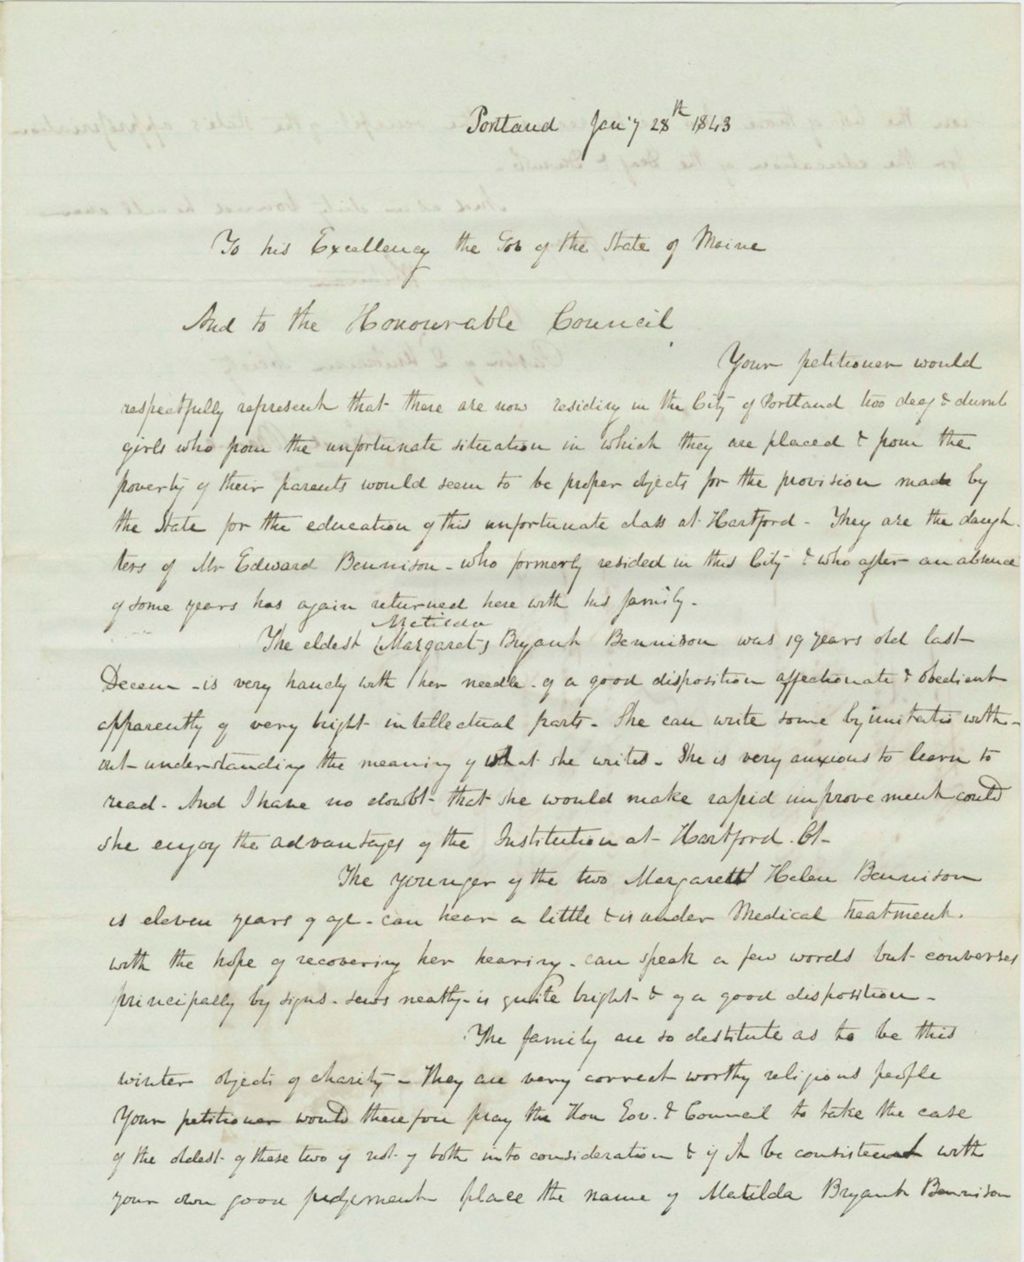 Portland Jan'y 28th 1843
To his Excellency the Gov of the State of Maine
And to the Honourable Council
Your petitioner would
respectfully represent that there are now residing in the City of Portland two deaf & dumb
girls who from the unfortunate situation in which they are placed & from the
poverty of their parents would seem to be proper objects for the provision made by
the State for the education of this unfortunate class at Hartford - They are the daugh-
ters of Mr Edward Bennison - who formerly resided in this City & who after an absence
of some years has again returned here with his family -
Metilda
The eldest (Margaret) Bryant Bennison was 19 years old last
Decem - is very handy with her needle - of a good disposition affectionate & obedient
apparently of very bright intellectual parts - She can write some by imitatio with-
out understanding the meaning of what she writes - She is very anxious to learn to
read - And I have no doubt that she would make rapid improvement could
she enjoy the advantages of the Institution at Hartford. Ct -
The younger of the two Margarett Helen Bennison
is eleven years of age - can hear a little & is under Medical treatment.
with the hope of recovering her hearing - can speak a few words but converses
principally by signs - sews neatly - is quite bright & of a good disposition -
The family are so destitute as to be this
winter objects of charity - They are very correct worthy religious people
Your petitioner would therefore pray the Hon Gov. & Council to take the case
of the oldest of these two if not of both into consideration & if it be consisteent with
your own good judgement place the name of Matilda Bryant Bennison